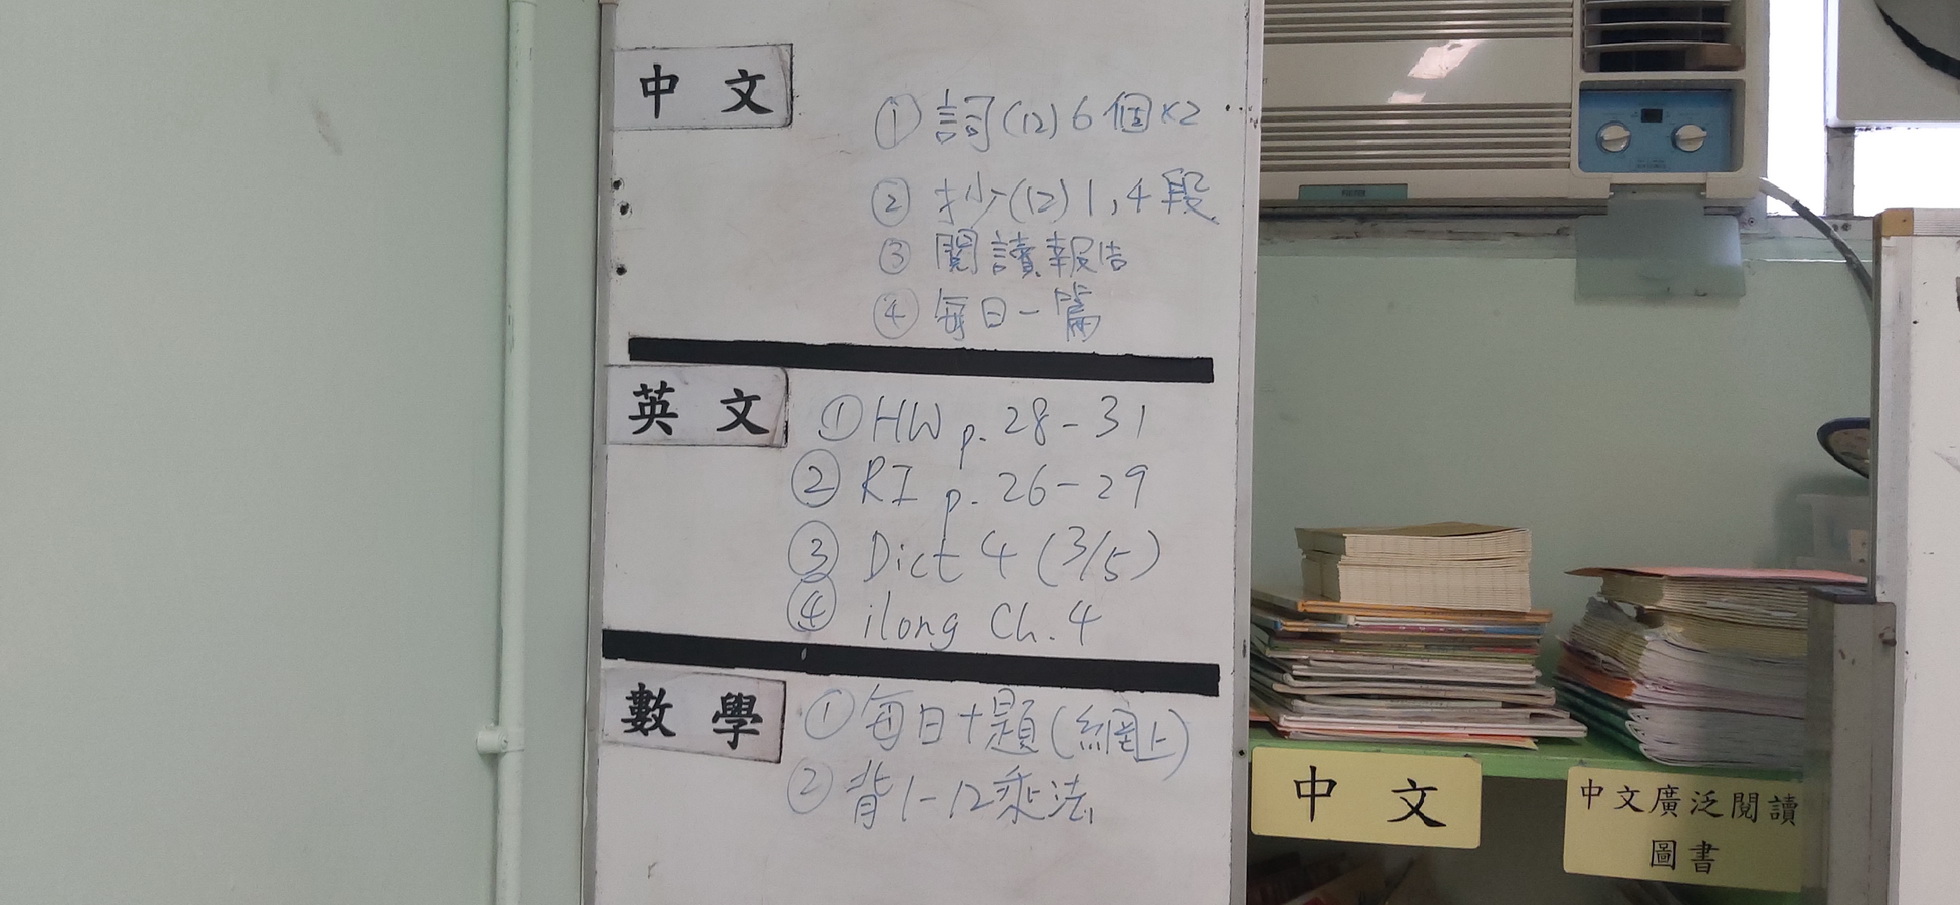 中文
① 詞(12) 6個×2
② 抄(12) 1,4段
③ 閱讀報告
④ 每日一篇
英文
① HW p. 28-31
② RI p. 26-29
③ Dict 4 (3/5)
④ ilong Ch. 4
數學
① 每日十題(網上)
② 背1-12乘法
中文
中文廣泛閱讀
圖書